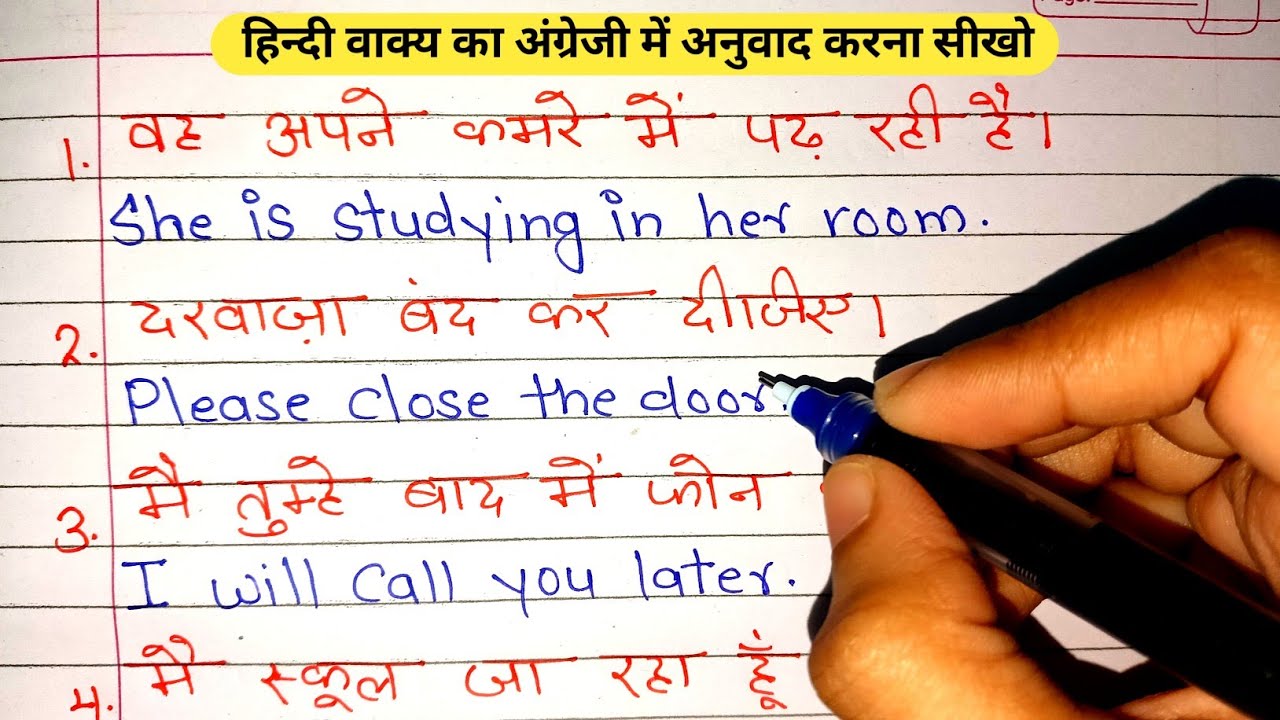 हिन्दी वाक्य का अंग्रेजी में अनुवाद करना सीखो
1. वह अपने कमरे में पढ़ रही है।
She is studying in her room.
2. दरवाज़ा बंद कर दीजिए।
Please close the door.
3. मै तुम्हे बाद में फोन
I will call you later.
4. मै स्कूल जा रहा हूँ